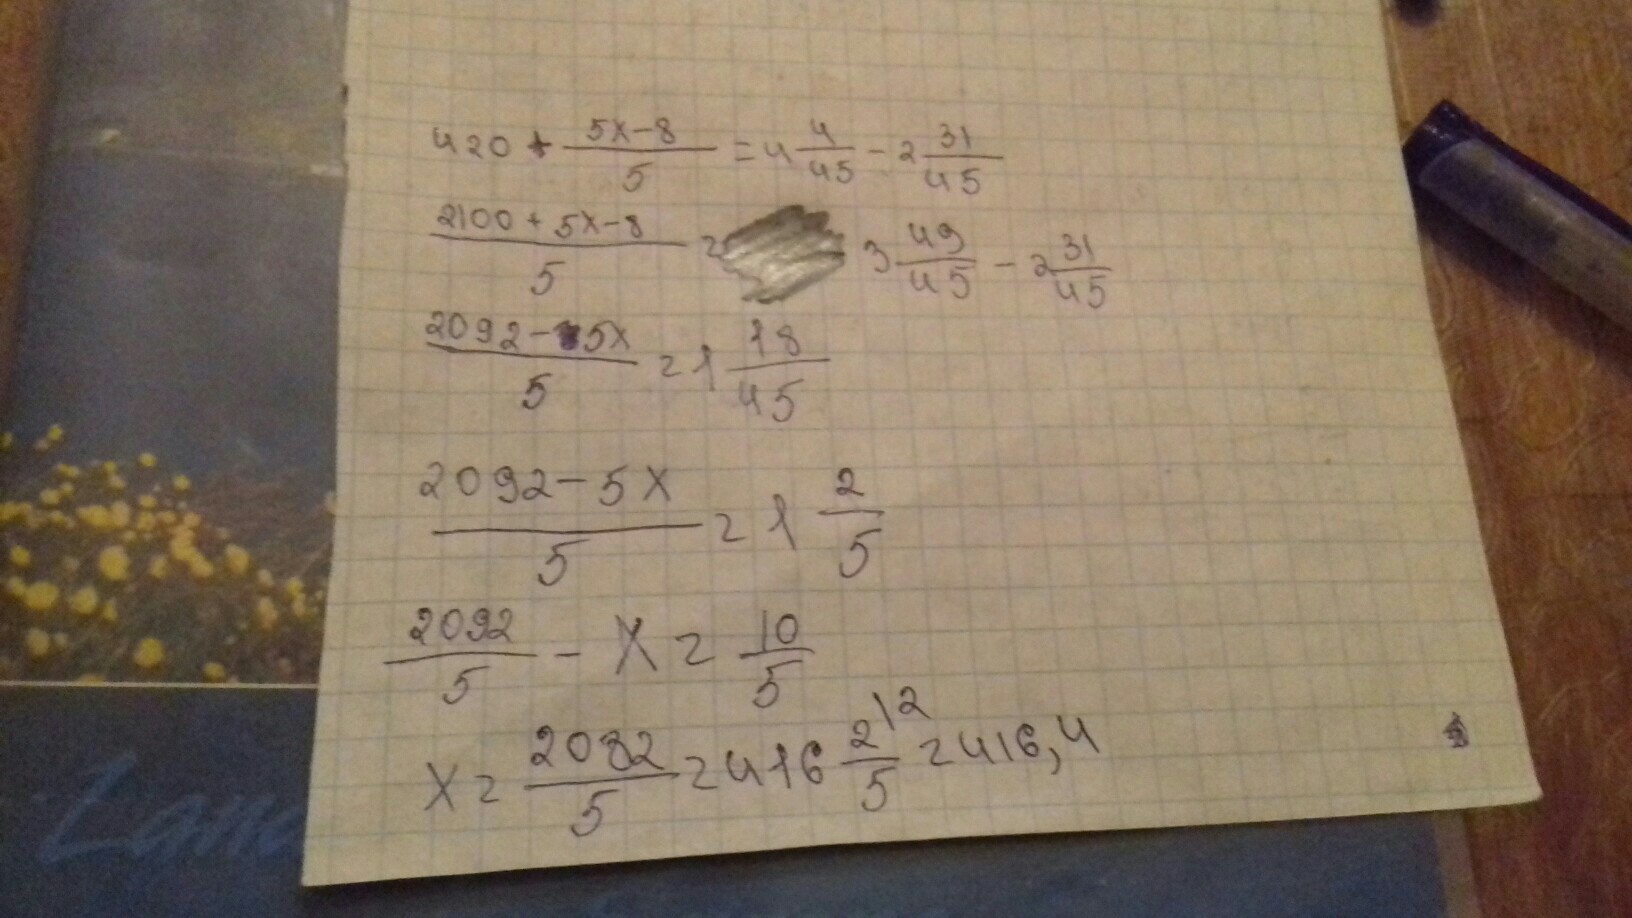 420 + (5x-8)/5 = 4 4/45 - 2 31/45
(2100 + 5x-8)/5 = 3 49/45 - 2 31/45
(2092-5x)/5 = 1 18/45
(2092-5x)/5 = 1 2/5
2092/5 - x = 10/5
x = 2082/5 = 416 2|2/5 = 416,4